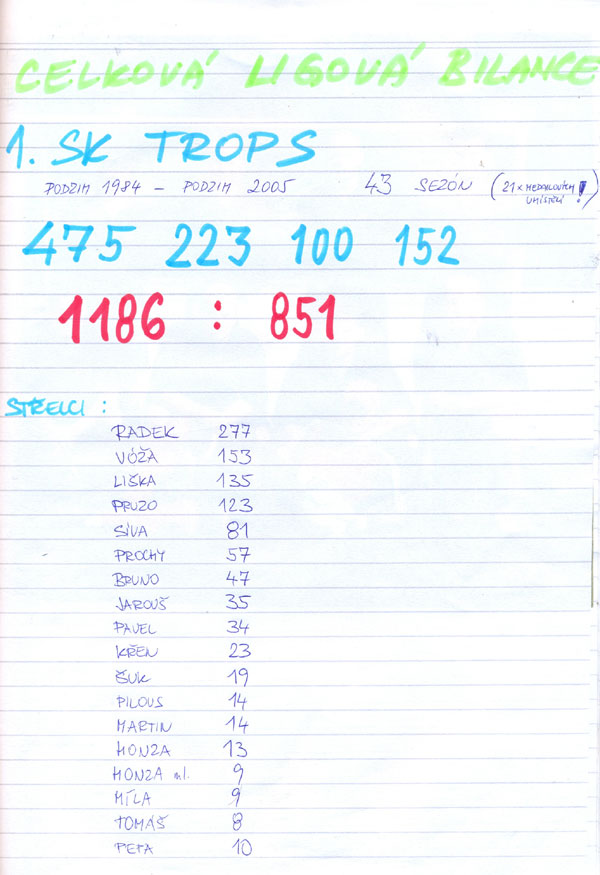 CELKOVÁ LIGOVÁ BILANCE
1. SK TROPS
PODZIM 1984 – PODZIM 2005 43 SEZÓN (21x MEDAILOVÝCH UMÍSTĚNÍ!)
475 223 100 152
1186 : 851
STŘELCI :
RADEK 277
VÓŽA 153
LIŠKA 135
PRUZO 123
SÍVA 81
PROCHY 57
BRUNO 47
JAROUŠ 35
PAVEL 34
KŘEN 23
ŠUK 19
PILOUS 14
MARTIN 14
HONZA 13
HONZA ml. 9
MÍLA 9
TOMÁŠ 8
PEŤA 10